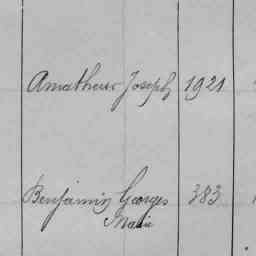 Amatheur Joseph 1921
Benjamin Georges 383
Marie